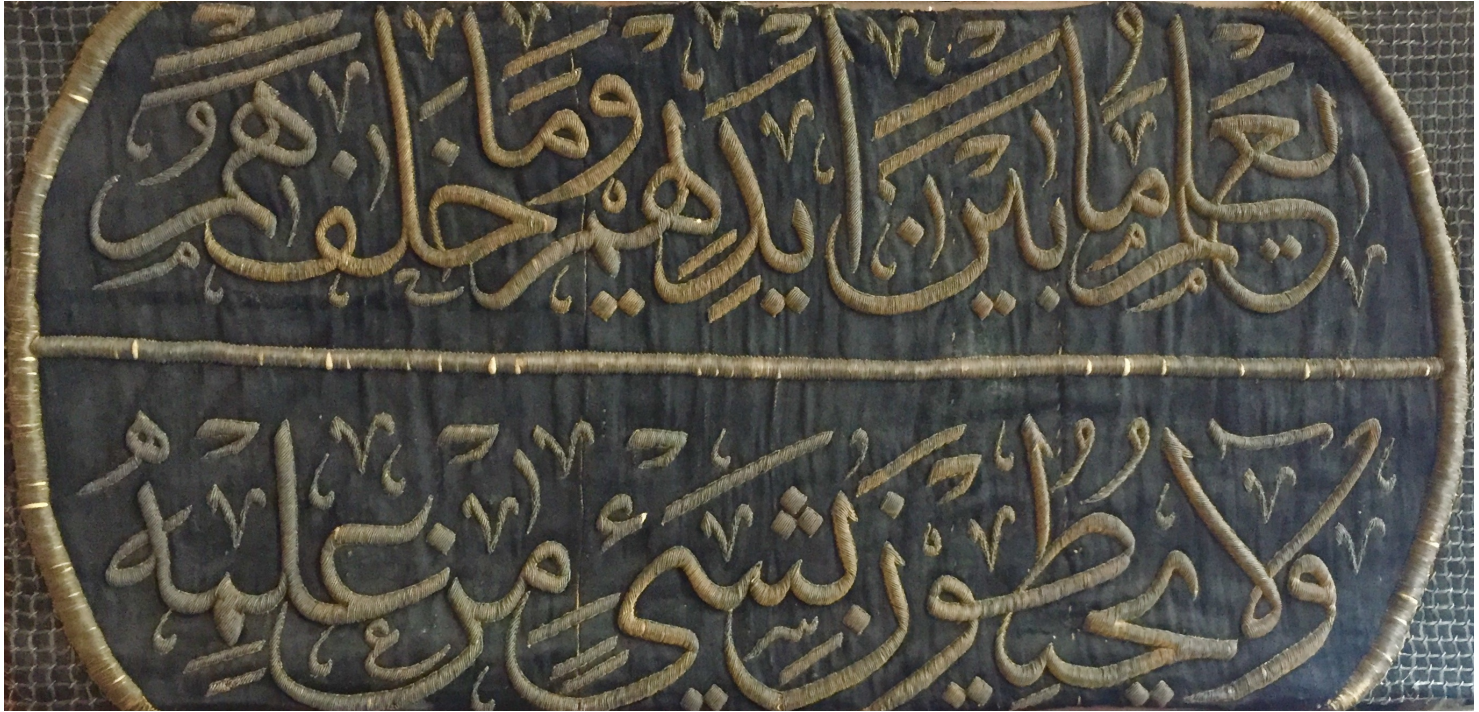 يَعْلَمُ مَا بَيْنَ اَيْدِيهِمْ وَمَا خَلْفَهُمْ
وَلَا يُحِيطُونَ بِشَيْءٍ مِنْ عِلْمِهِ